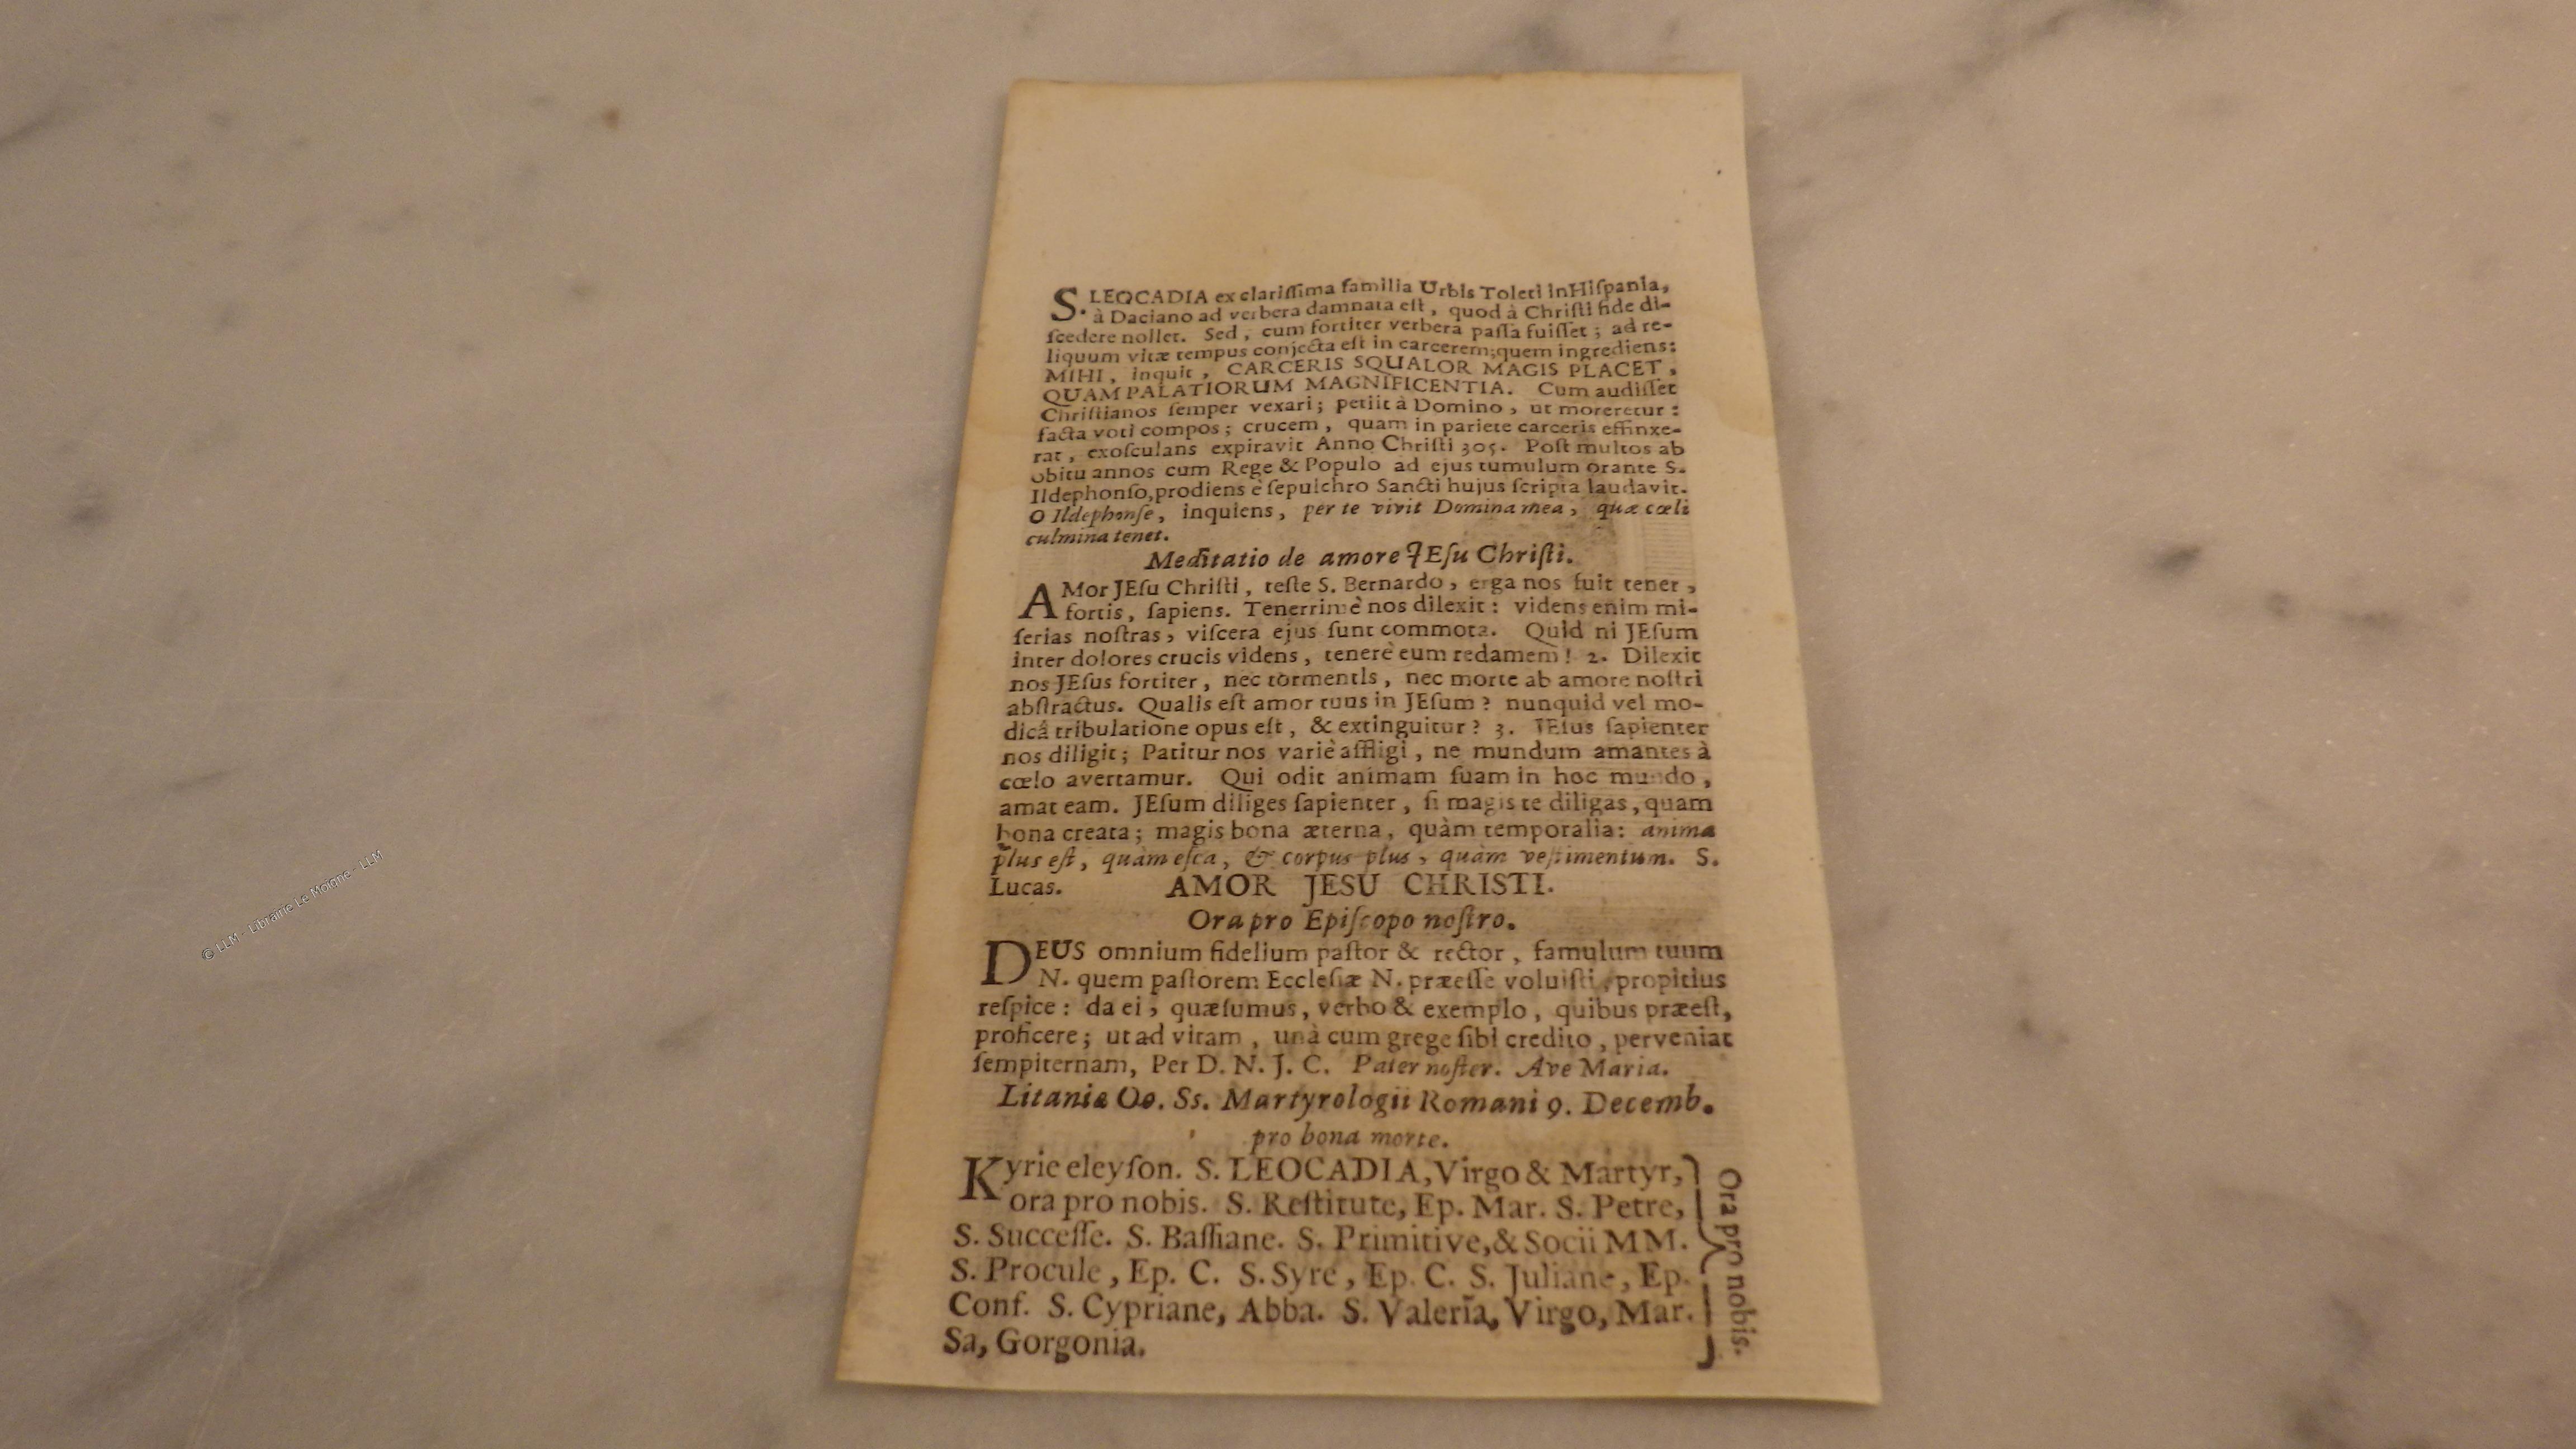 S. LEOCADIA ex clariſſima familia Urbis Toleti in Hiſpania,
à Daciano ad verbera damnata eſt, quod à Chriſti fide di-
ſcedere nollet. Sed, cum fortiter verbera paſſa fuiſſet; ad re-
liquum vitæ tempus conjecta eſt in carcerem; quem ingrediens:
MIHI, inquit, CARCERIS SQUALOR MAGIS PLACET,
QUAM PALATIORUM MAGNIFICENTIA. Cum audiſſet
Chriſtianos ſemper vexari; petiit à Domino, ut moreretur:
facta voti compos; crucem, quam in pariete carceris effinxe-
rat, exoſculans expiravit Anno Chriſti 305. Poſt multos ab
obitu annos cum Rege & Populo ad ejus tumulum orante S.
Ildephonſo, prodiens è ſepulchro Sancti hujus ſcripta laudavit.
O Ildephonſe, inquiens, per te vivit Domina mea, quæ cœli
culmina tenet.
Meditatio de amore JEſu Chriſti.
AMor JEſu Chriſti, teſte S. Bernardo, erga nos fuit tener,
fortis, ſapiens. Tenerrimè nos dilexit: videns enim mi-
ſerias noſtras, viſcera ejus ſunt commota. Quid ni JEſum
inter dolores crucis videns, tenerè eum redamem! 2. Dilexit
nos JEſus fortiter, nec tormentis, nec morte ab amore noſtri
abſtractus. Qualis eſt amor tuus in JEſum? nunquid vel mo-
dicâ tribulatione opus eſt, & extinguitur? 3. JEſus ſapienter
nos diligit; Patitur nos variè affligi, ne mundum amantes à
cœlo avertamur. Qui odit animam ſuam in hoc mundo,
amat eam. JEſum diliges ſapienter, ſi magis te diligas, quam
bona creata; magis bona æterna, quàm temporalia: anima
plus eſt, quàm eſca, & corpus plus, quàm veſtimentum. S.
Lucas. AMOR JESU CHRISTI.
Ora pro Epiſcopo noſtro.
DEUS omnium fidelium paſtor & rector, famulum tuum
N. quem paſtorem Eccleſiæ N. præeſſe voluiſti, propitius
reſpice: da ei, quæſumus, verbo & exemplo, quibus præeſt,
proficere; ut ad vitam, unà cum grege ſibi credito, perveniat
ſempiternam, Per D. N. J. C. Pater noſter. Ave Maria.
Litaniæ Oo. Ss. Martyrologii Romani 9. Decemb.
pro bona morte.
Kyrie eleyſon. S. LEOCADIA, Virgo & Martyr,
ora pro nobis. S. Reſtitute, Ep. Mar. S. Petre,
S. Succeſſe. S. Baſſiane. S. Primitive, & Socii MM.
S. Procule, Ep. C. S. Syre, Ep. C. S. Juliane, Ep.
Conf. S. Cypriane, Abba. S. Valeria, Virgo, Mar.
Sa, Gorgonia.
Ora pro nobis.
© LLM - Librairie Le Moigne - LLM